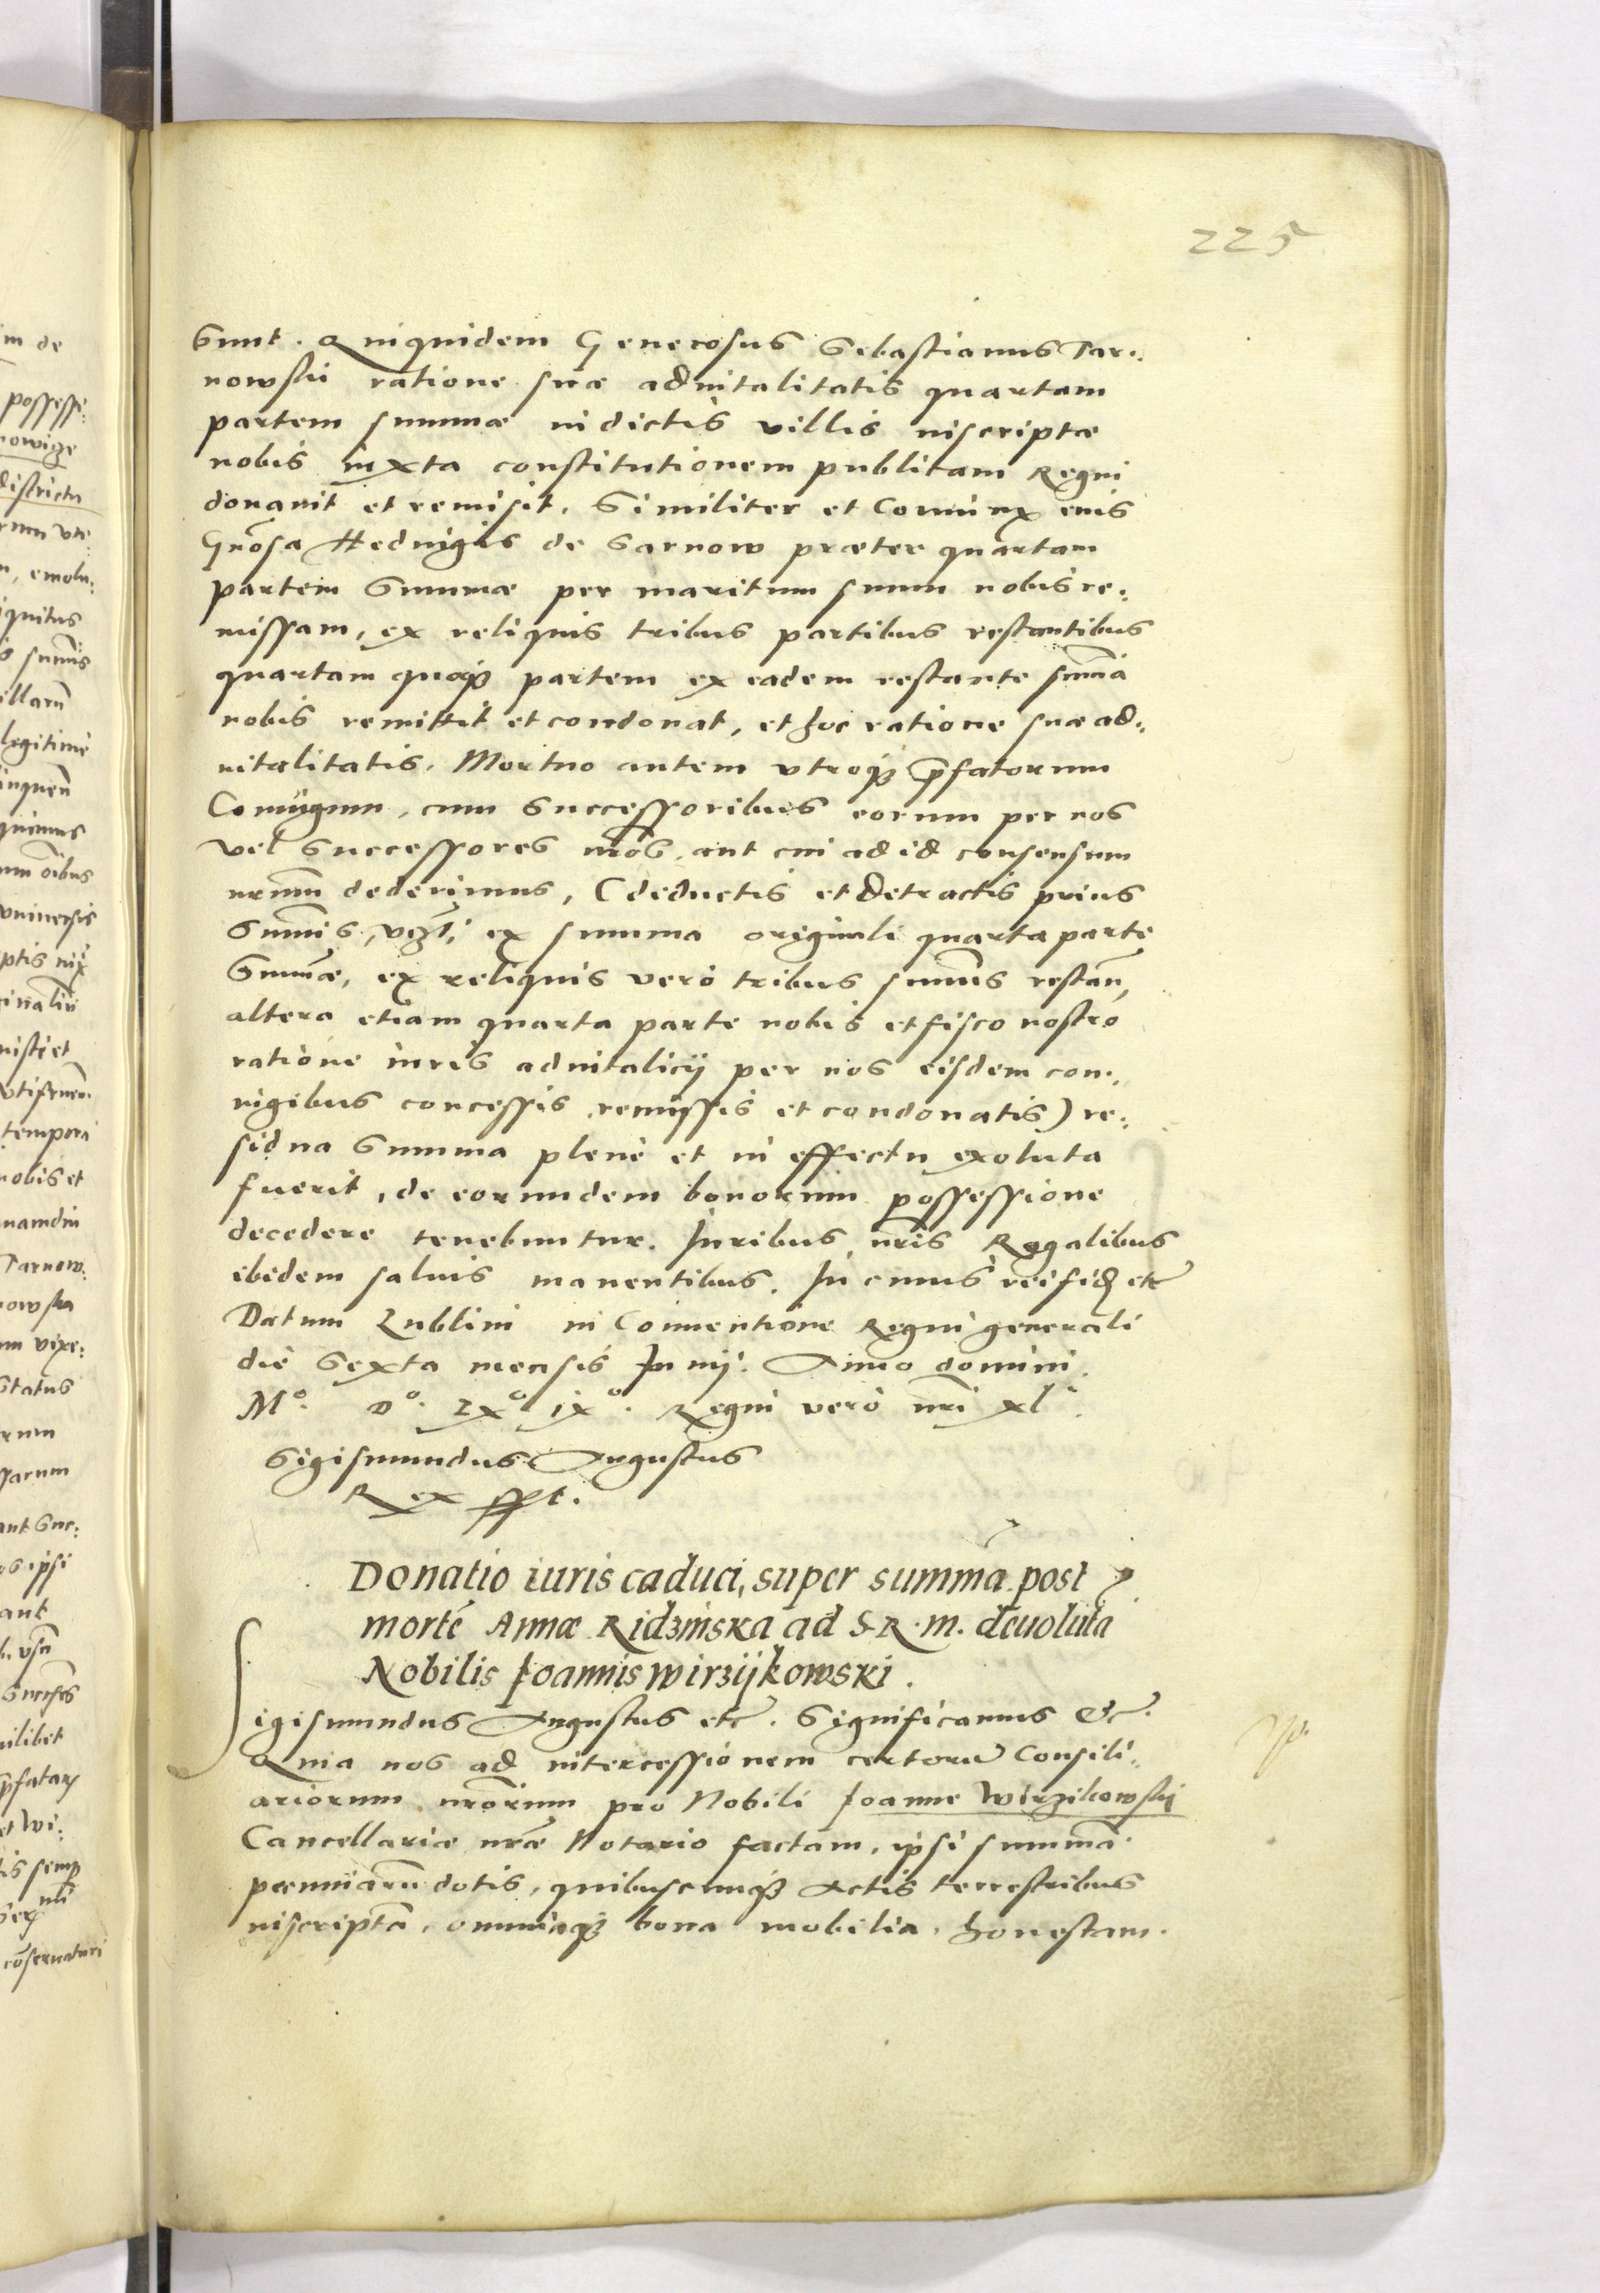 225
sunt. Quiquidem Generosus Sebastianus Tar:
nowski ratione suæ advitalitatis quartam
partem summæ in dictis villis inscriptæ
nobis iuxta constitutionem publicam Regni
donavit et remisit. Similiter et Coniunx eius
Gnosa Hedvigis de Sarnow præter quartam
partem Summæ per maritum suum nobis re:
missam, ex reliquis tribus partibus restantibus
quartam quoqʒ partem ex eadem restante sum̃a
nobis remittit et condonat, et hoc ratione suæ ad:
vitalitatis. Mortuo autem utroqʒ p̃fatorum
Coniugum, cum Successoribus eorum per nos
vel Successores nr̃os, aut cui ad id consensum
nr̃um dederimus, (deductis et detractis prius
Sum̃is, vzt: ex summa originali quarta parte
Sum̃æ, ex reliquis vero tribus sum̃is restañ,
altera etiam quarta parte nobis et fisco nostro
ratione iuris advitalicij per nos eisdem con:
iugibus concessis, remissis et condonatis) re:
sidua Summa plene et in effectu exoluta
fuerit, de eorundem bonorum possessione
decedere tenebuntur. Iuribus nr̃is Regalibus
ibidem salvis manentibus. In cuius rei fid etc
Datum Lublini in Conventione Regni generali
die Sexta mensis Junij. Anno domini
Mº. Dº. LXº ixº. Regni vero nr̃i xl.
Sigismundus Augustus
Rex sspt.
Donatio iuris caduci, super summã post
mortẽ Annæ Ridzinska ad S. R. m. devoluta
Nobilis Joannis Wirzijkowski.
Sigismundus Augustus etc. Significamus &c.
Quia nos ad intercessionem certorũ Consili:
ariorum nr̃orum pro Nobili Joanne Wirzikowskij
Cancellariæ nr̃æ Notario factam, ipsi summã
pecuniarũ dotis, quibuscunqʒ Actis terrestribus
inscriptã, omniaqʒ bona mobilia, honestam